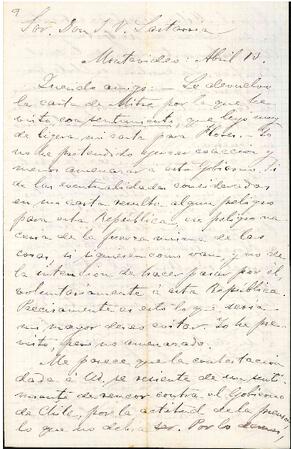 9
Sor. Don J. V. Lastarria
Montevideo: Abril 10.
Querido amigo: Le devuelvo
la carta de Mitre por la que he
visto con sentimiento, que leyó muy
de ligera mi carta para Flores. Yo
no he pretendido ejercer coaccion y
menos amenazar a este Gobierno. Si
de las eventualidades consideradas
en mi carta resulta algun peligro
para esta República, ese peligro na
cería de la fuerza misma de las
cosas, si siguiesen como van, y no de
la intencion de hacer pasar por él
voluntariamente a esta República.
Precisamente es esto lo que sería
mi mayor deseo evitar. Yo he pre-
visto, pero no amenazado.
Me parece que la contestacion
dada a Ud. se resiente de un senti-
miento de rencor contra el Gobierno
de Chile, por la actitud de la prensa
lo que no debia ser. Por lo demas,